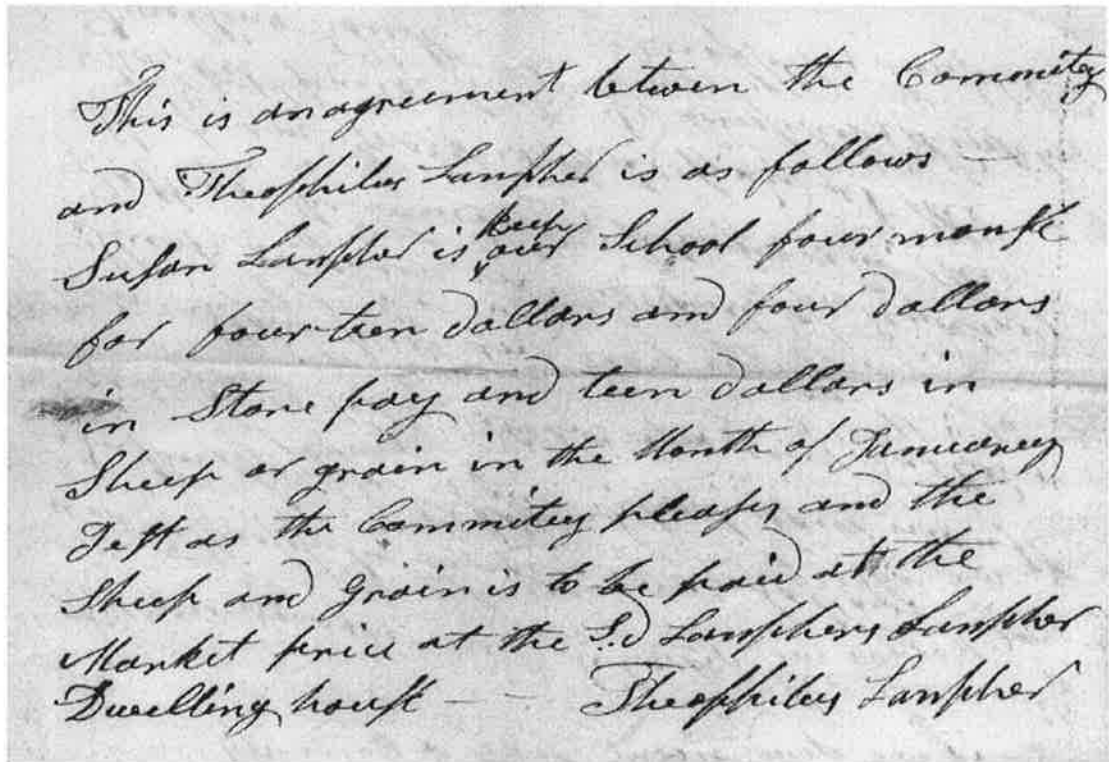 This is an agreement between the Commitey
and Theophilus Lanpher is as follows —
Susan Lanpher is keep our School four months
for fourteen dollars and four dollars
in Store pay and teen dollars in
Sheep or grain in the Month of Januearey
Jest as the Commitey pleases and the
Sheep and Grain is to be paid at the
Market price at the Sd Lanphers Lanpher
Dwelling house — — Theophilus Lanpher